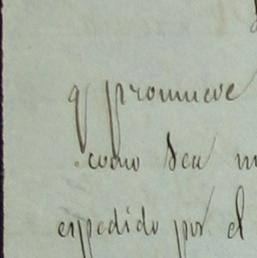 q promueve
como sea
espedido por el